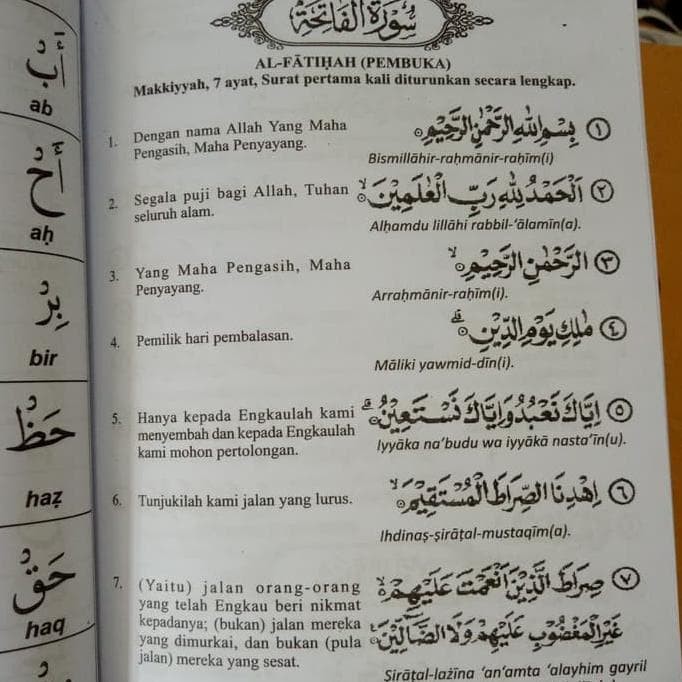 سورة الفاتحة
AL-FĀTIḤAH (PEMBUKA)
Makkiyyah, 7 ayat, Surat pertama kali diturunkan secara lengkap.
1. Dengan nama Allah Yang Maha
Pengasih, Maha Penyayang.
بِسْمِ اللّٰهِ الرَّحْمٰنِ الرَّحِيْمِ ١
Bismillāhir-raḥmānir-raḥīm(i)
2. Segala puji bagi Allah, Tuhan
seluruh alam.
اَلْحَمْدُ لِلّٰهِ رَبِّ الْعٰلَمِيْنَۙ ٢
Alḥamdu lillāhi rabbil-‘ālamīn(a).
3. Yang Maha Pengasih, Maha
Penyayang.
الرَّحْمٰنِ الرَّحِيْمِۙ ٣
Arraḥmānir-raḥīm(i).
4. Pemilik hari pembalasan.
مٰلِكِ يَوْمِ الدِّيْنِۗ ٤
Māliki yawmid-dīn(i).
5. Hanya kepada Engkaulah kami
menyembah dan kepada Engkaulah
kami mohon pertolongan.
اِيَّاكَ نَعْبُدُ وَاِيَّاكَ نَسْتَعِيْنُۗ ٥
Iyyāka na’budu wa iyyākā nasta’īn(u).
6. Tunjukilah kami jalan yang lurus.
اِهْدِنَا الصِّرَاطَ الْمُسْتَقِيْمَۙ ٦
Ihdinaṣ-ṣirāṭal-mustaqīm(a).
7. (Yaitu) jalan orang-orang
yang telah Engkau beri nikmat
kepadanya; (bukan) jalan mereka
yang dimurkai, dan bukan (pula
jalan) mereka yang sesat.
صِرَاطَ الَّذِيْنَ اَنْعَمْتَ عَلَيْهِمْ ەۙ ٧
غَيْرِ الْمَغْضُوْبِ عَلَيْهِمْ وَلَا الضَّاۤلِّيْنَ
Ṣirāṭal-lażīna ‘an‘amta ‘alayhim gayril
أَبْ
ab
أَحْ
aḥ
بِرْ
bir
حَظْ
haẓ
حَقْ
haq